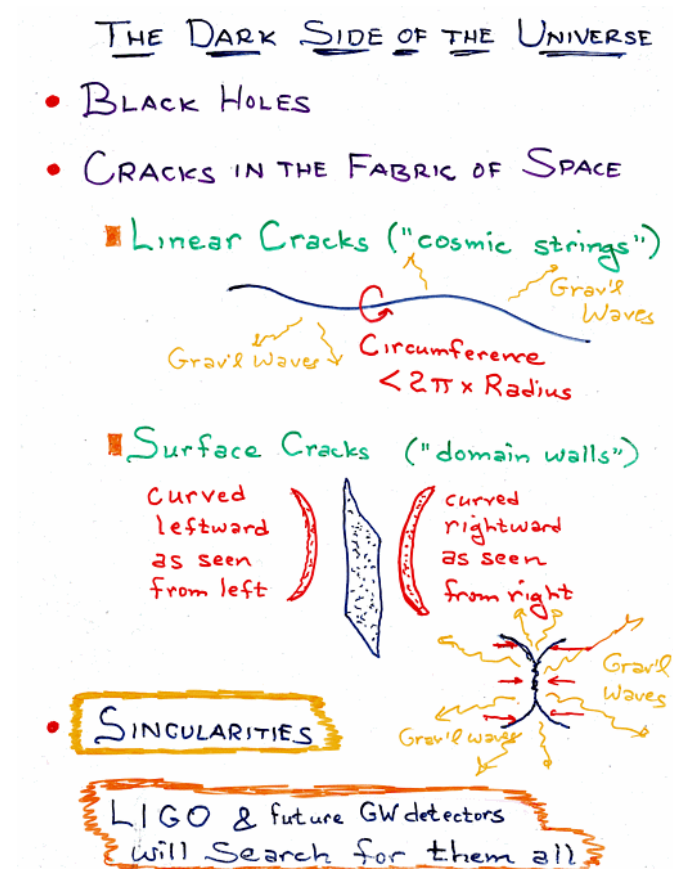 THE DARK SIDE OF THE UNIVERSE
• BLACK HOLES
• CRACKS IN THE FABRIC OF SPACE
Linear Cracks ("cosmic strings")
Grav'l
Waves
Grav'l Waves
Circumference
< 2π x Radius
Surface Cracks ("domain walls")
curved
leftward
as seen
from left
curved
rightward
as seen
from right
Grav'l
Waves
Grav'l waves
• SINGULARITIES
LIGO & future GW detectors
will Search for them all